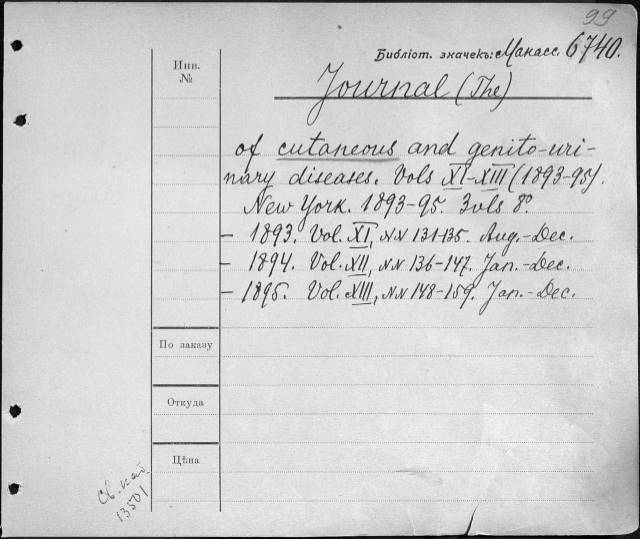 99
Библіот. значекъ: Манасс. 6740.
Инв.
№
Journal (The)
of cutaneous and genito-uri-
nary diseases. Vols XI-XIII (1893-95).
New York. 1893-95. 3 vols 8°.
— 1893. Vol. XI, NN 131-135. Aug.-Dec.
— 1894. Vol. XII, NN 136-147. Jan.-Dec.
— 1895. Vol. XIII, NN 148-159. Jan.-Dec.
По заказу
Откуда
Цѣна
Св. кат.
13501